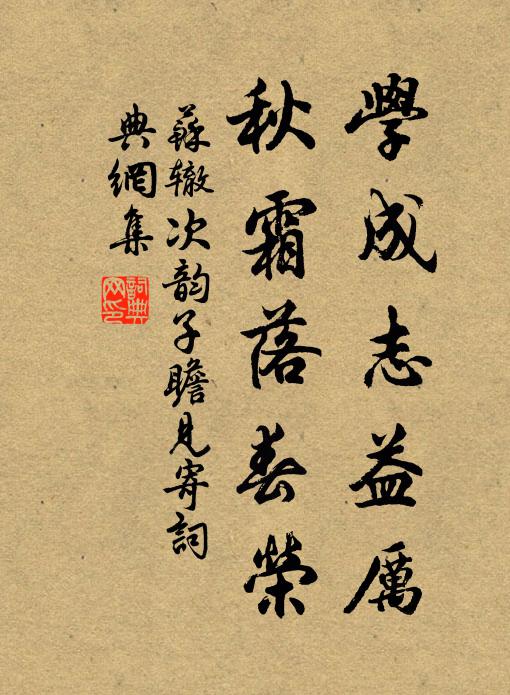 學成志益厲
秋霜落春榮
蘇辙次韵子瞻見寄詞
典網集
詞典
网印